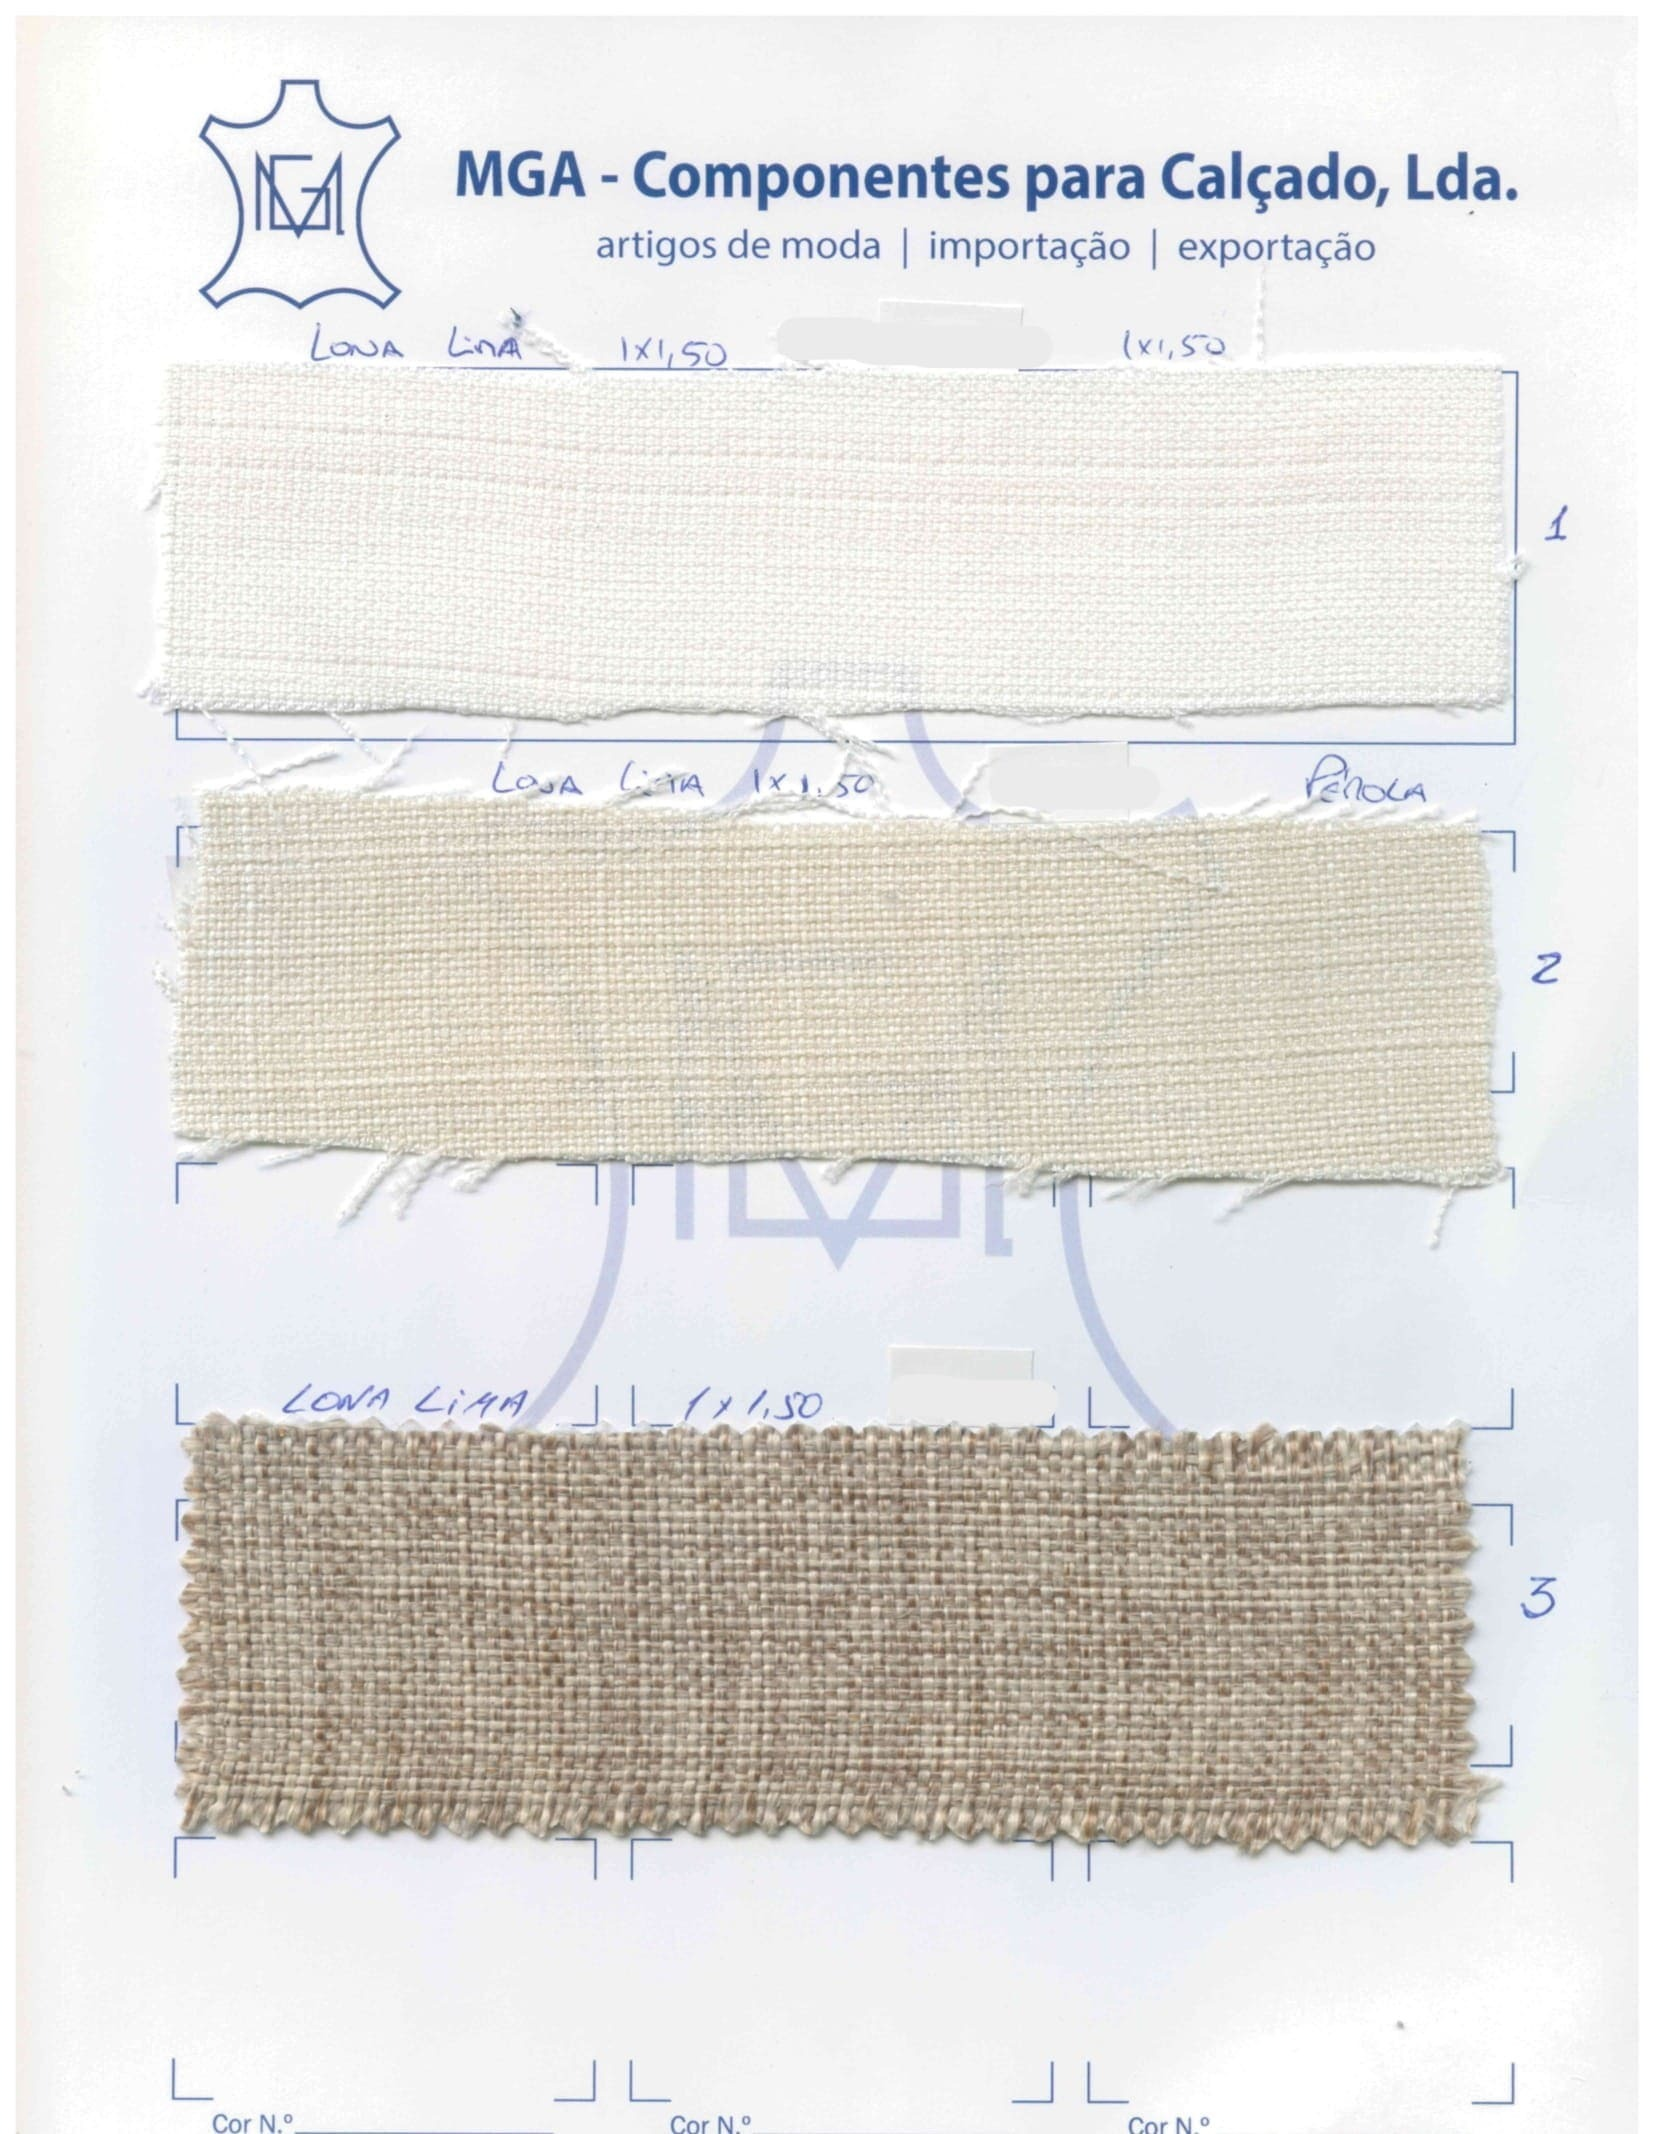 MGA
MGA - Componentes para Calçado, Lda.
artigos de moda | importação | exportação
LONA LIMA 1x1,50 1x1,50
1
LONA LIMA 1x1.50 PÉROLA
2
LONA LIMA 1x1,50
3
Cor N.º Cor N.º Cor N.º